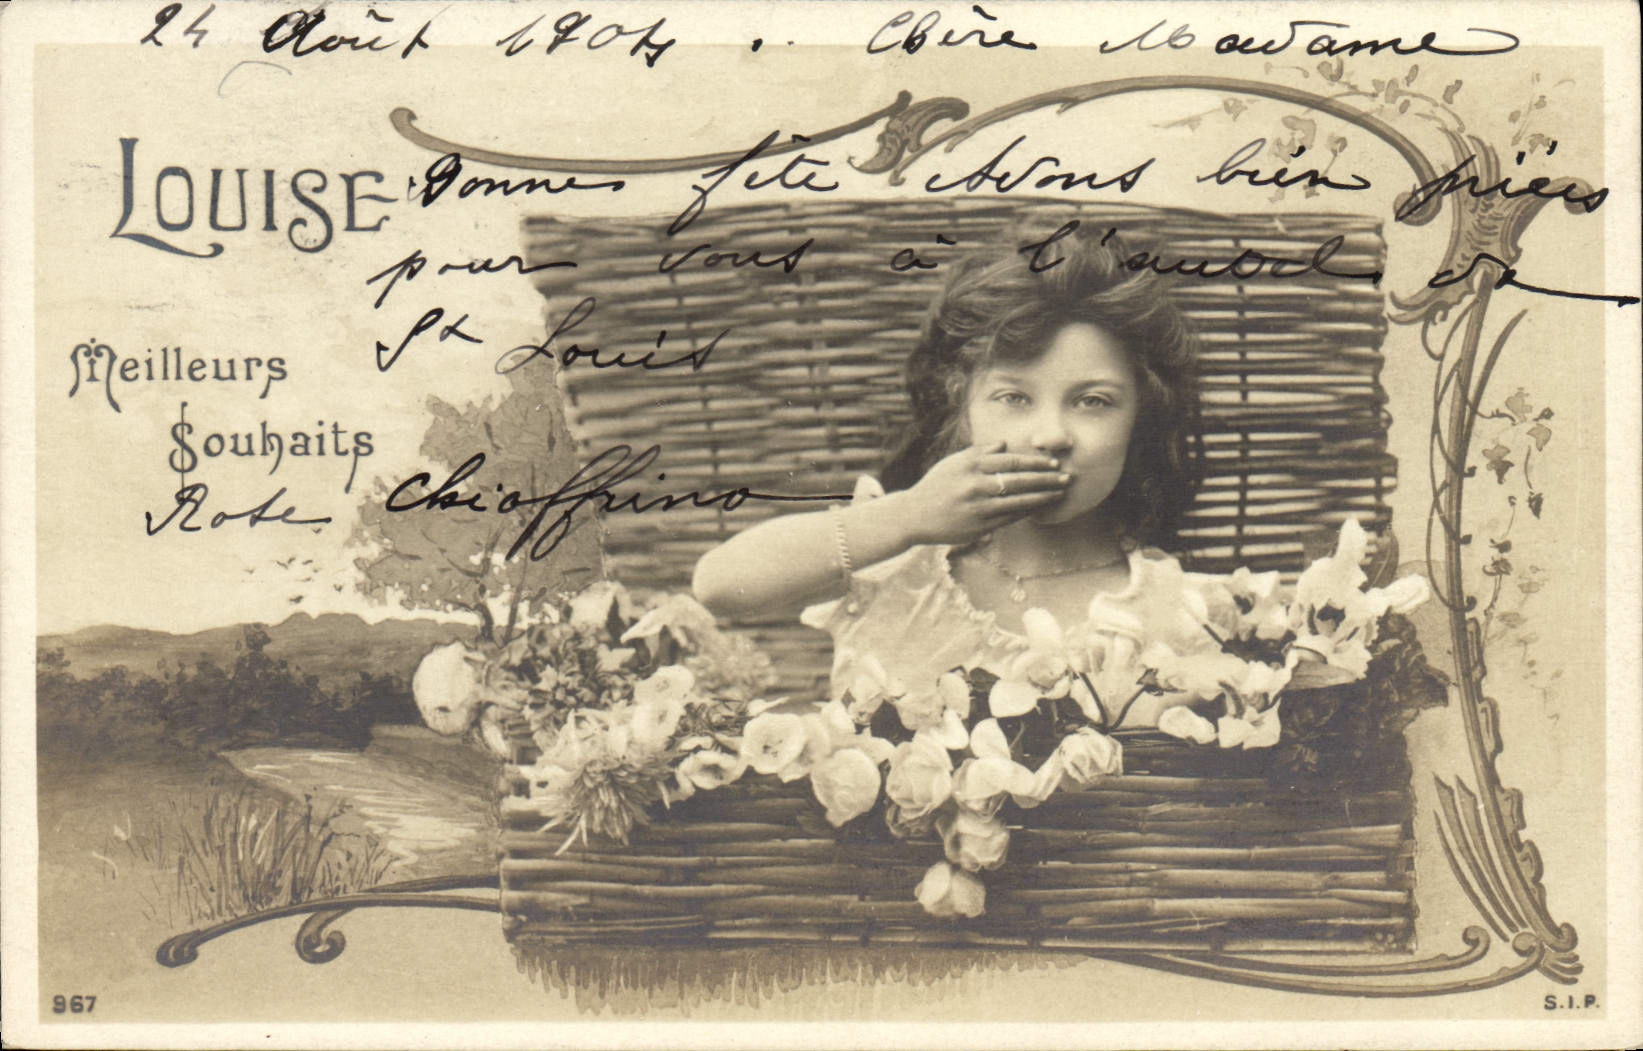 24 Août 1904 .. Chère Madame
LOUISE
Bonne fête Avons bien priées
pour vous à l'autel de
St Louis
Meilleurs
Souhaits
Rose Chioffrino
967
S.I.P.